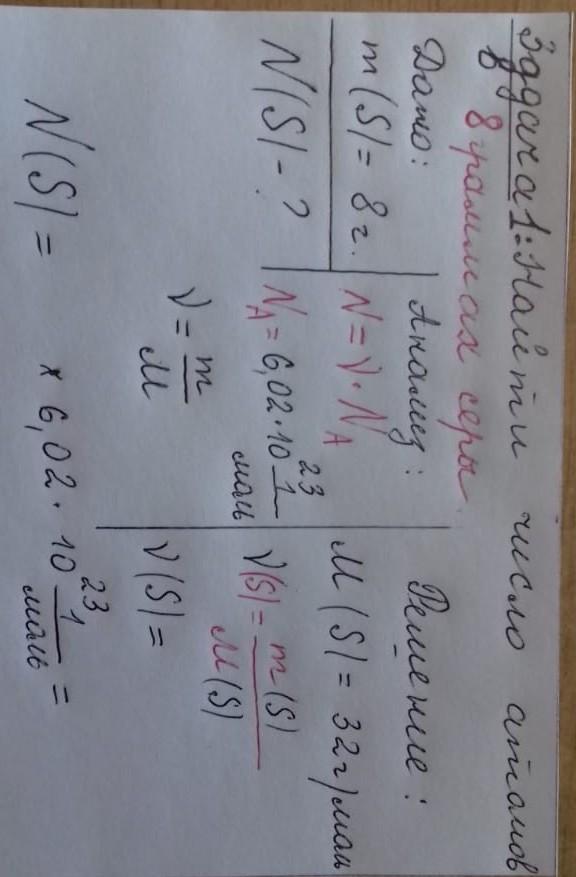 Задача 1: Найти число атомов
в 8 граммах серы.
Дано:
m(S) = 8г.
N(S) - ?
Анализ:
N = ν · N_A
N_A = 6,02 · 10^23 1/моль
ν = m/M
Решение:
M(S) = 32г/моль
ν(S) = m(S)/M(S)
ν(S) =
N(S) = × 6,02 · 10^23 1/моль =